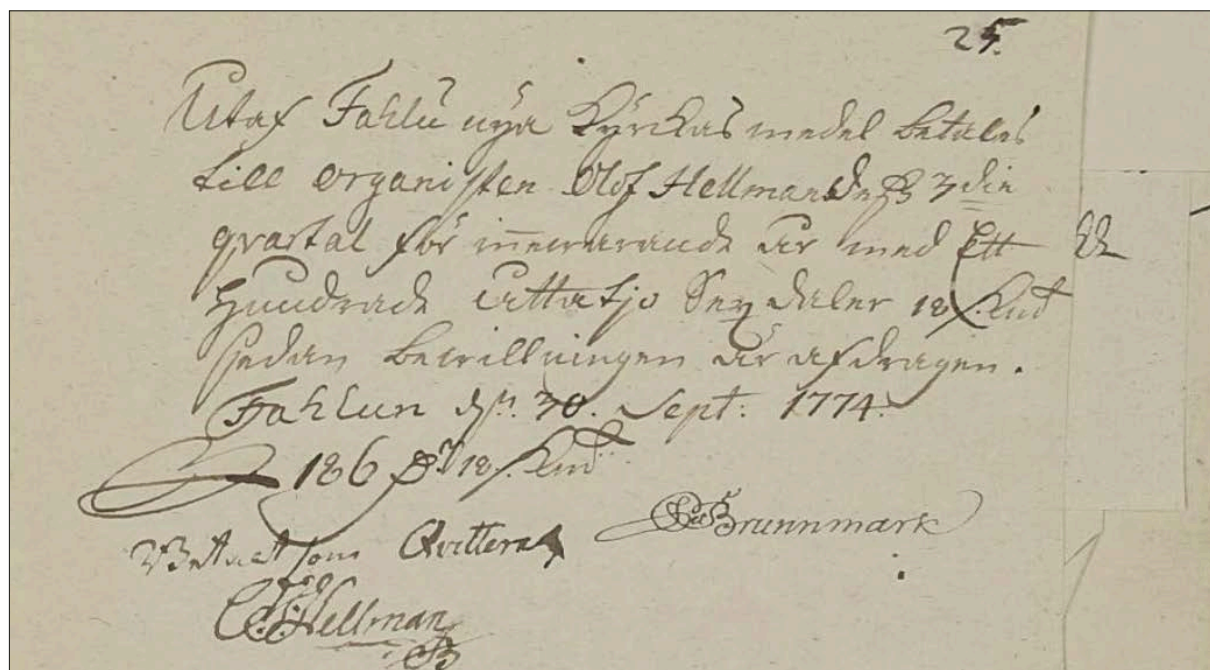 25.
Utaf Fahlu nya Kyrckas medel betales
till Organisten Olof Hellman dess 3die
qvartal för innewarande år med Ett
Hundrade Ottatijo Sex daler 18 /. Kmt
sedan bewillningen är afdragen.
Fahlun d. 30. Sept. 1774.
186 Dr 18 /. Kmt
Brunnmark
Betalt som Qvitteras
Hellman